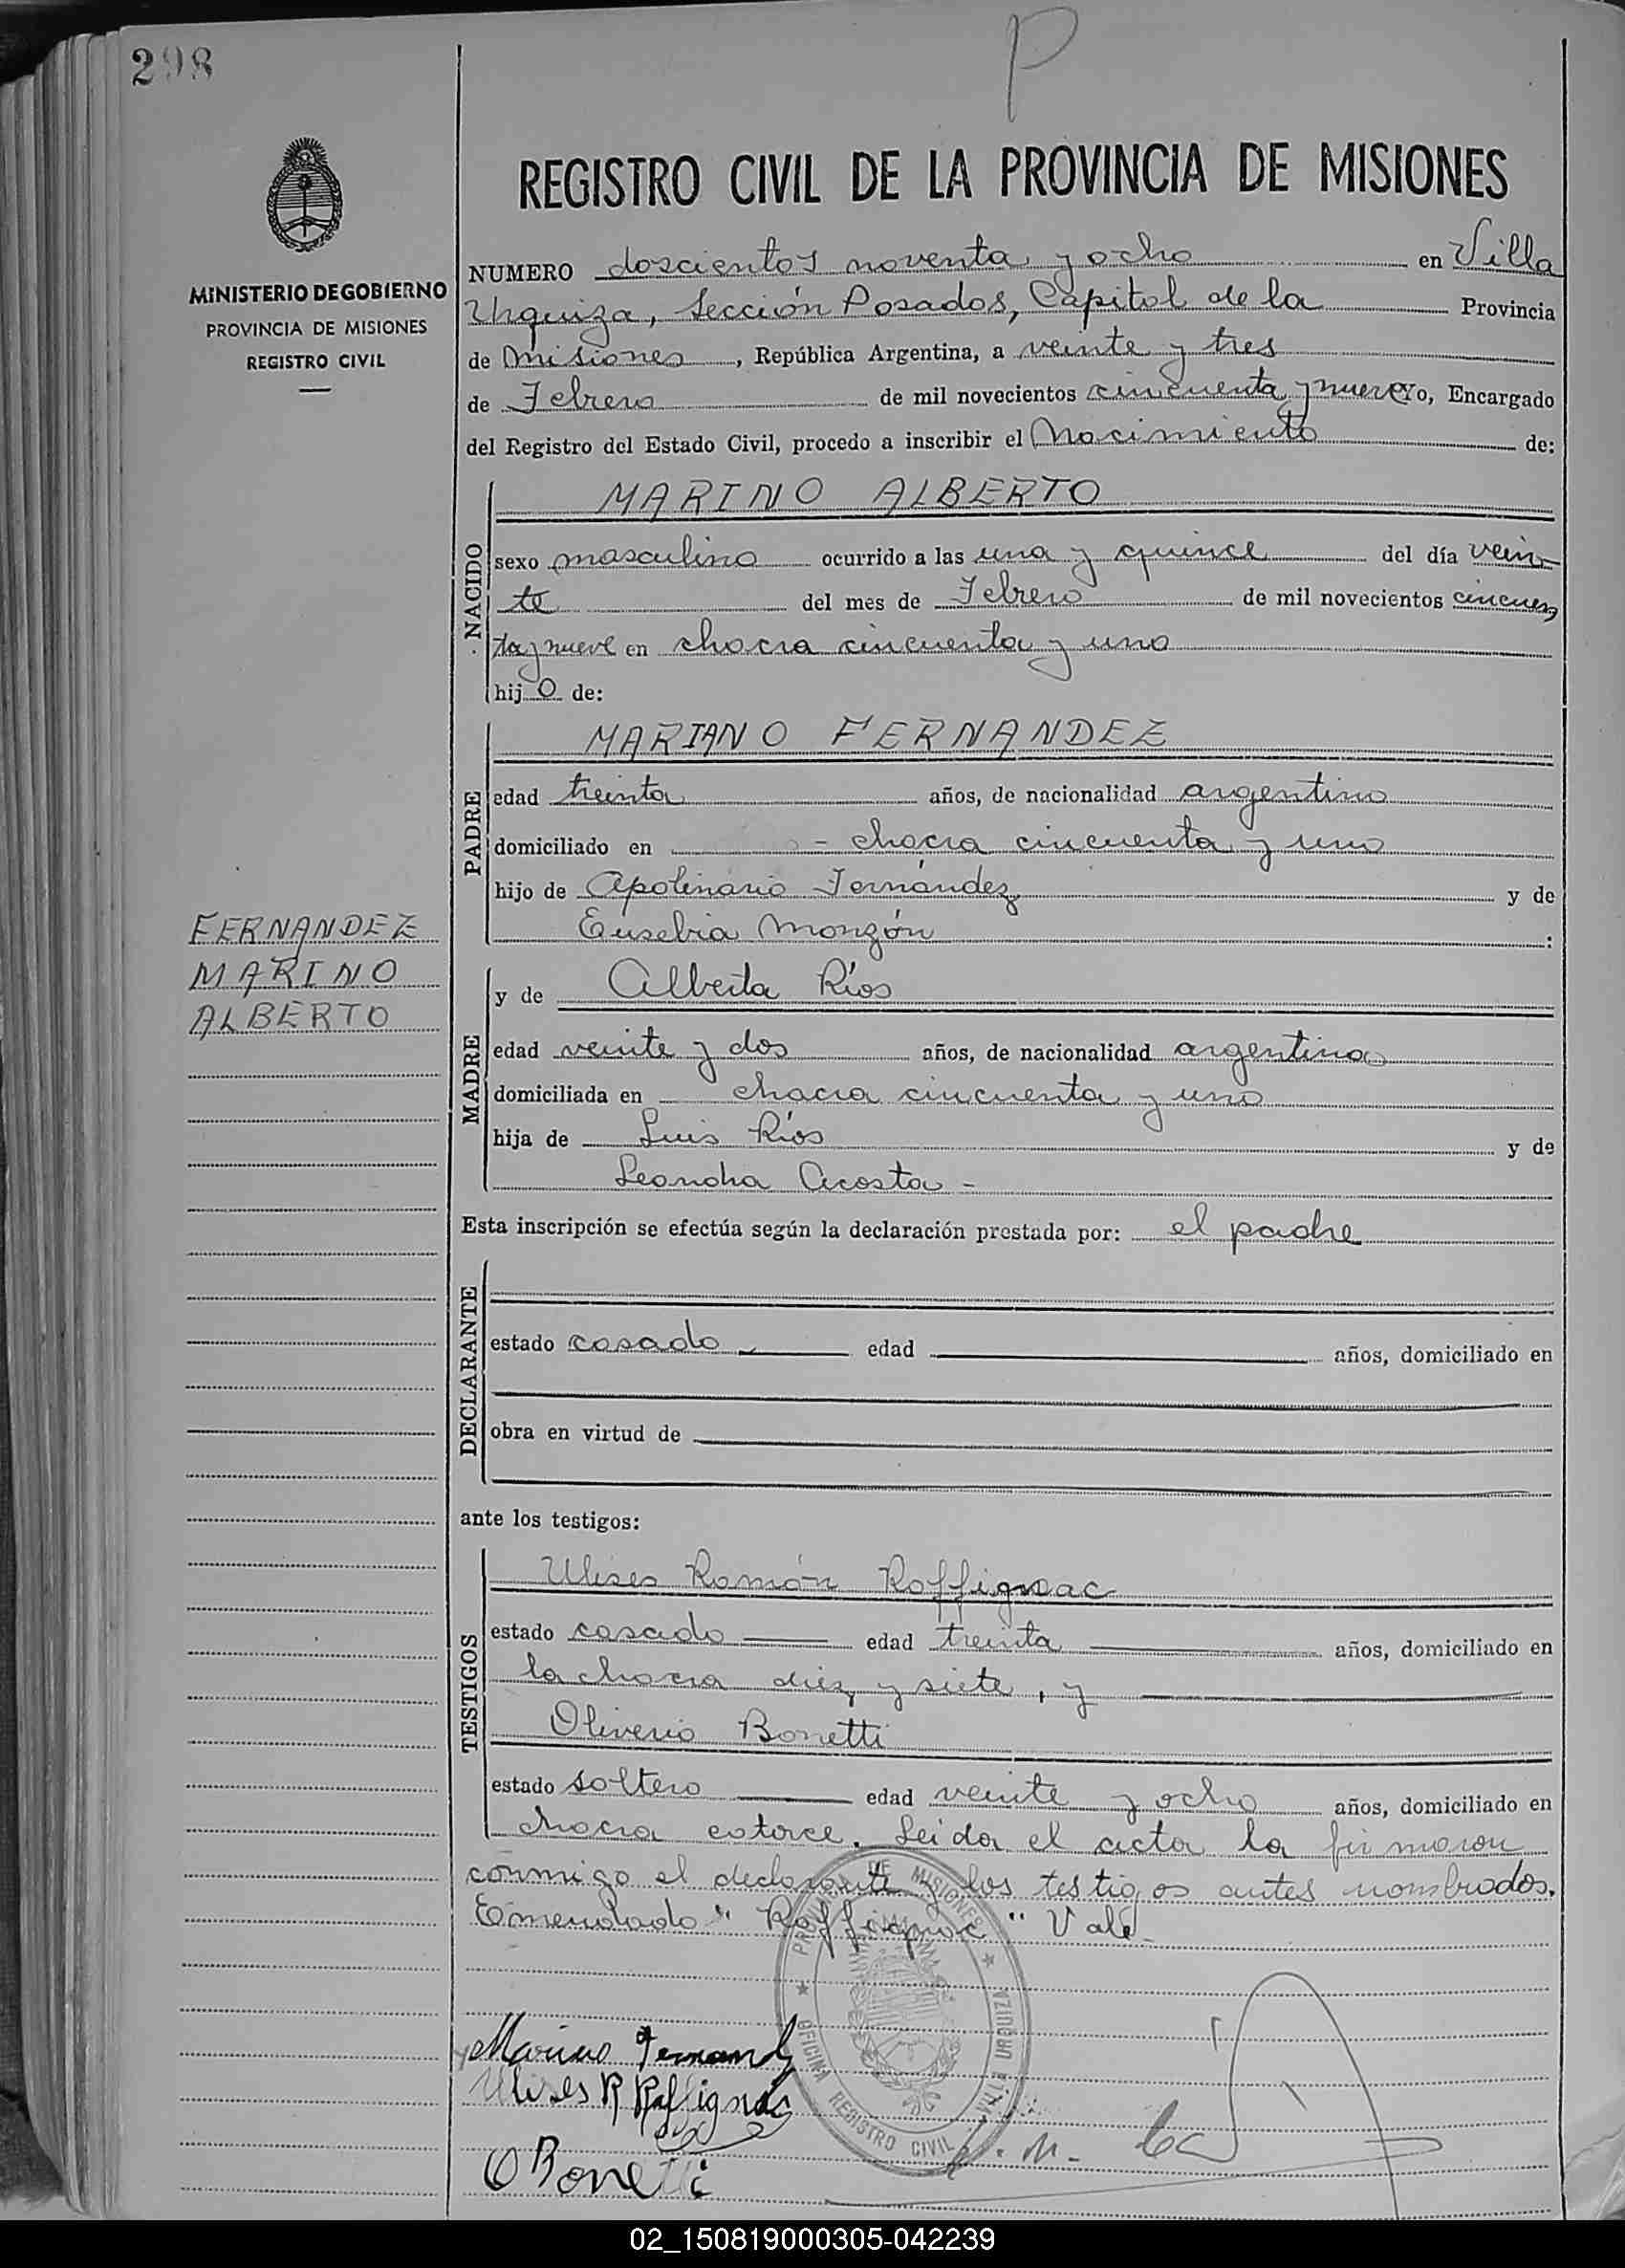 298
P
REGISTRO CIVIL DE LA PROVINCIA DE MISIONES
MINISTERIO DE GOBIERNO
PROVINCIA DE MISIONES
REGISTRO CIVIL
NUMERO doscientos noventa y ocho en Villa
Urquiza, Sección Posadas, Capital de la Provincia
de Misiones, República Argentina, a veinte y tres
de Febrero de mil novecientos cincuenta y nueve yo, Encargado
del Registro del Estado Civil, procedo a inscribir el Nacimiento de:
NACIDO
MARINO ALBERTO
sexo masculino ocurrido a las una y quince del día vein
te del mes de Febrero de mil novecientos cincuen
ta y nueve en chacra cincuenta y uno
hijo de:
PADRE
MARIANO FERNANDEZ
edad treinta años, de nacionalidad argentino
domiciliado en - chacra cincuenta y uno
hijo de Apolinario Fernández y de
Eusebia Monzón :
FERNANDEZ
MARINO
ALBERTO
MADRE
y de Alberta Ríos
edad veinte y dos años, de nacionalidad argentina
domiciliada en chacra cincuenta y uno
hija de Luis Ríos y de
Leandra Acosta -
Esta inscripción se efectúa según la declaración prestada por: el padre
DECLARANTE
estado casado edad años, domiciliado en
obra en virtud de
ante los testigos:
TESTIGOS
Ulises Román Roffignac
estado casado edad treinta años, domiciliado en
la chacra diez y siete, y
Oliverio Bonetti
estado soltero edad veinte y ocho años, domiciliado en
chacra catorce. Leida el acta la firmaron
conmigo el declarante y los testigos antes nombrados.
Enmendado "Roffignac" Vale
PROVINCIA DE MISIONES
OFICINA REGISTRO CIVIL VILLA URQUIZA
Marino Fernandz
Ulises R Roffignac
O Bonetti
02_150819000305-042239